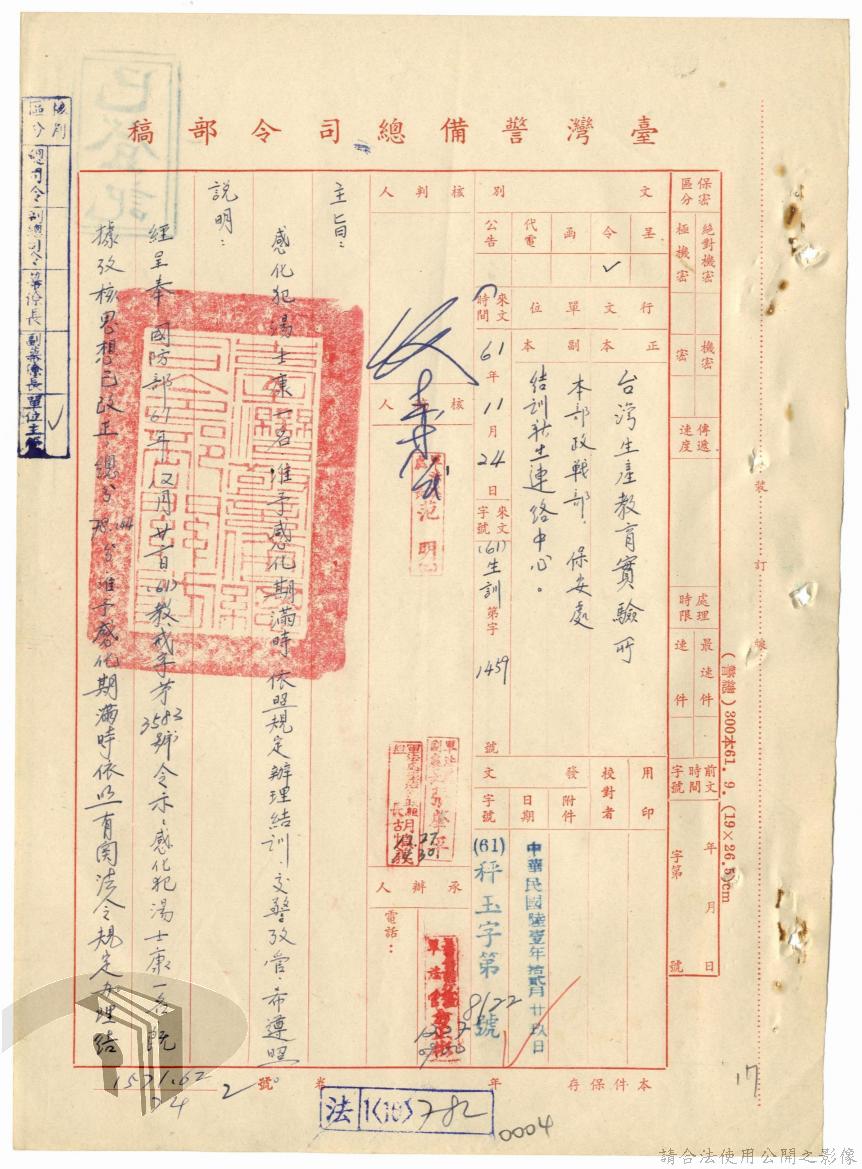 臺灣警備總司令部稿
已登記
核判區分
總司令
副總司令
參謀長
副參謀長
單位主管
保密區分
絕對機密
極機密
機密
密
傳遞速度
處理時限
最速件
速件
前文時間字號
年月日
字第號
文別
呈
令 ✓
函
代電
公告
行文單位
正本
副本
台灣生產教育實驗所
本部政戰部、保安處
結訓新生連絡中心。
來文時間
61年11月24日
來文字號
(61)生訓字第1459號
用印
校對者
發文
附件
日期
字號
中華民國陸壹年拾貳月廿玖日
(61)秤玉字第8122號
核判人
核稿人
承辦人
電話：
主旨：
感化犯湯士康一名准予感化期滿時依照規定辦理結訓交警攷管，希遵照。
說明：
經呈奉國防部61年12月廿 日(61)教戒字第3583號令示：感化犯湯士康一名既
據攷核思想已改正，總分78. 分准予感化期滿時依照有關法令規定辦理結
本件保存 年
卷 號
1571.62
04
2
法 1(10)782
0004
17
裝訂線
(警總) 300本61. 9. (19×26.5)cm
請合法使用公開之影像